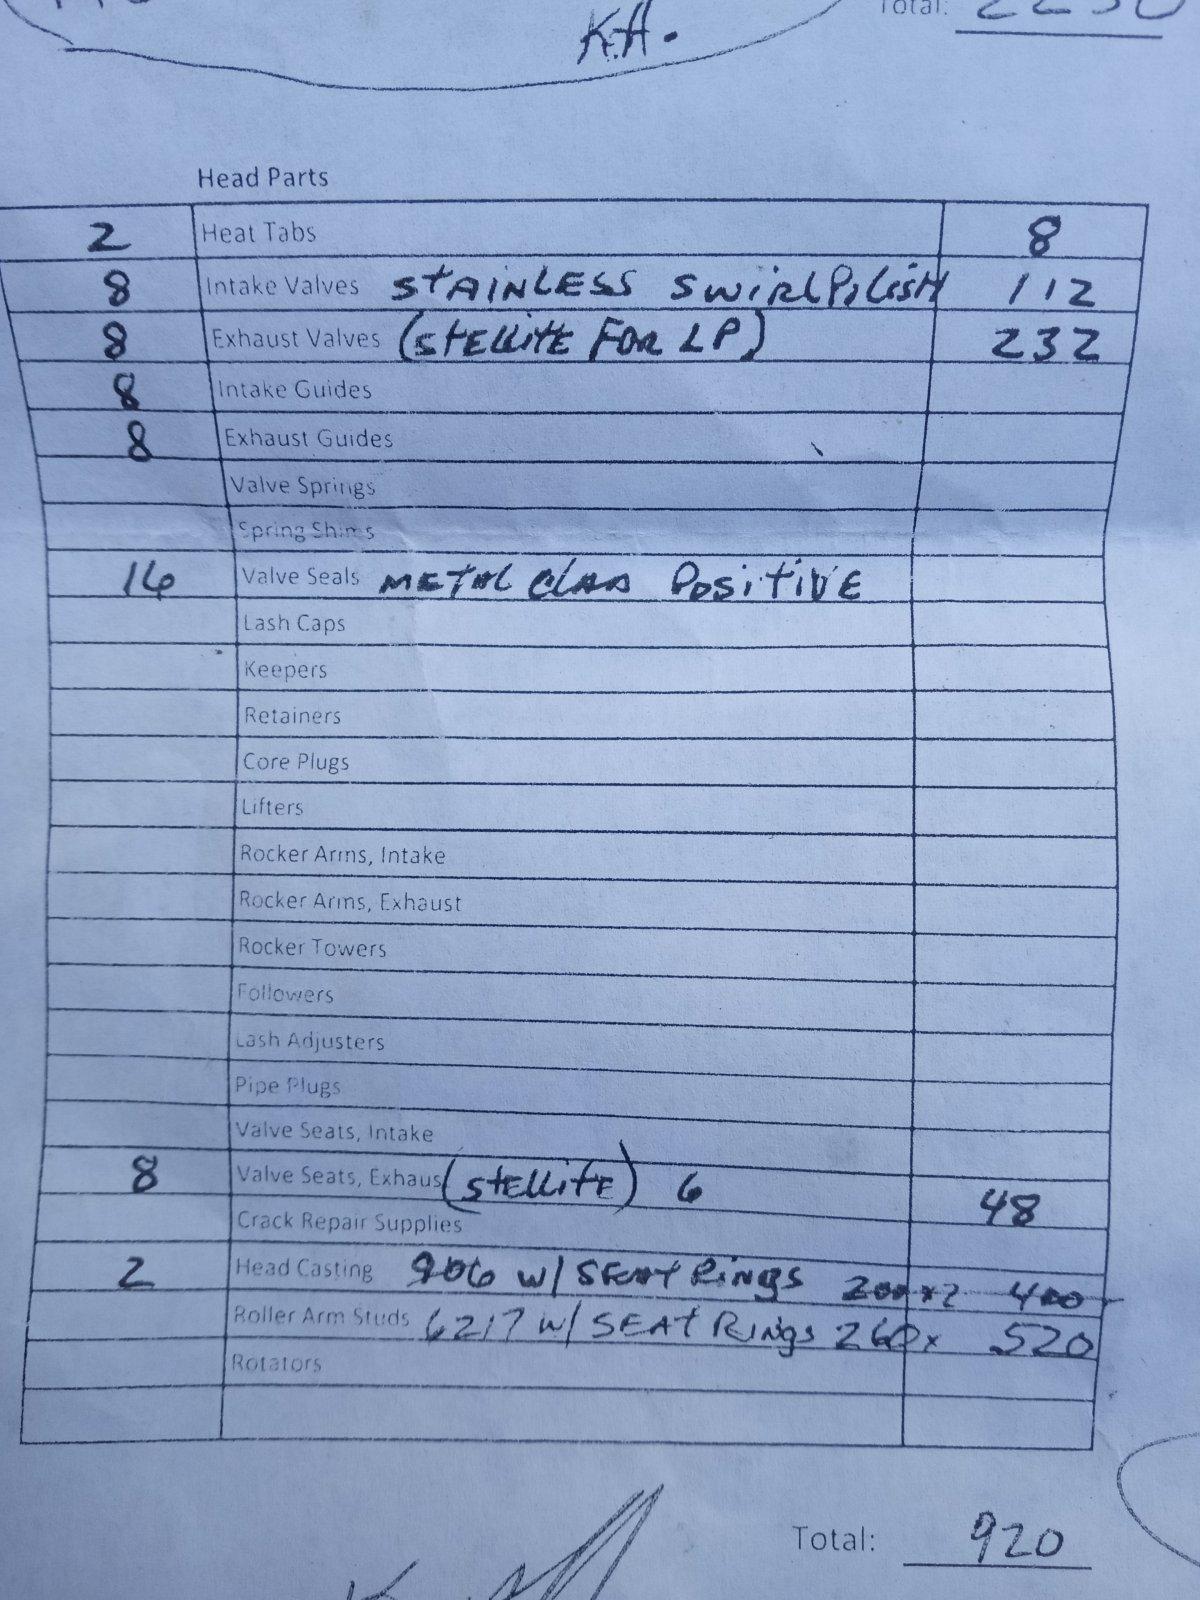 K.A.
Total: 2250
Head Parts
2 Heat Tabs 8
8 Intake Valves STAINLESS SWIRLPOLISH 112
8 Exhaust Valves (STELLITE FOR LP) 232
8 Intake Guides
8 Exhaust Guides
Valve Springs
Spring Shims
16 Valve Seals METAL CLAD POSITIVE
Lash Caps
Keepers
Retainers
Core Plugs
Lifters
Rocker Arms, Intake
Rocker Arms, Exhaust
Rocker Towers
Followers
Lash Adjusters
Pipe Plugs
Valve Seats, Intake
8 Valve Seats, Exhaus (STELLITE) 6 48
Crack Repair Supplies
2 Head Casting 906 W/ SEAT RINGS 200x2 400
Roller Arm Studs 6217 W/ SEAT RINGS 260x 520
Rotators
Total: 920